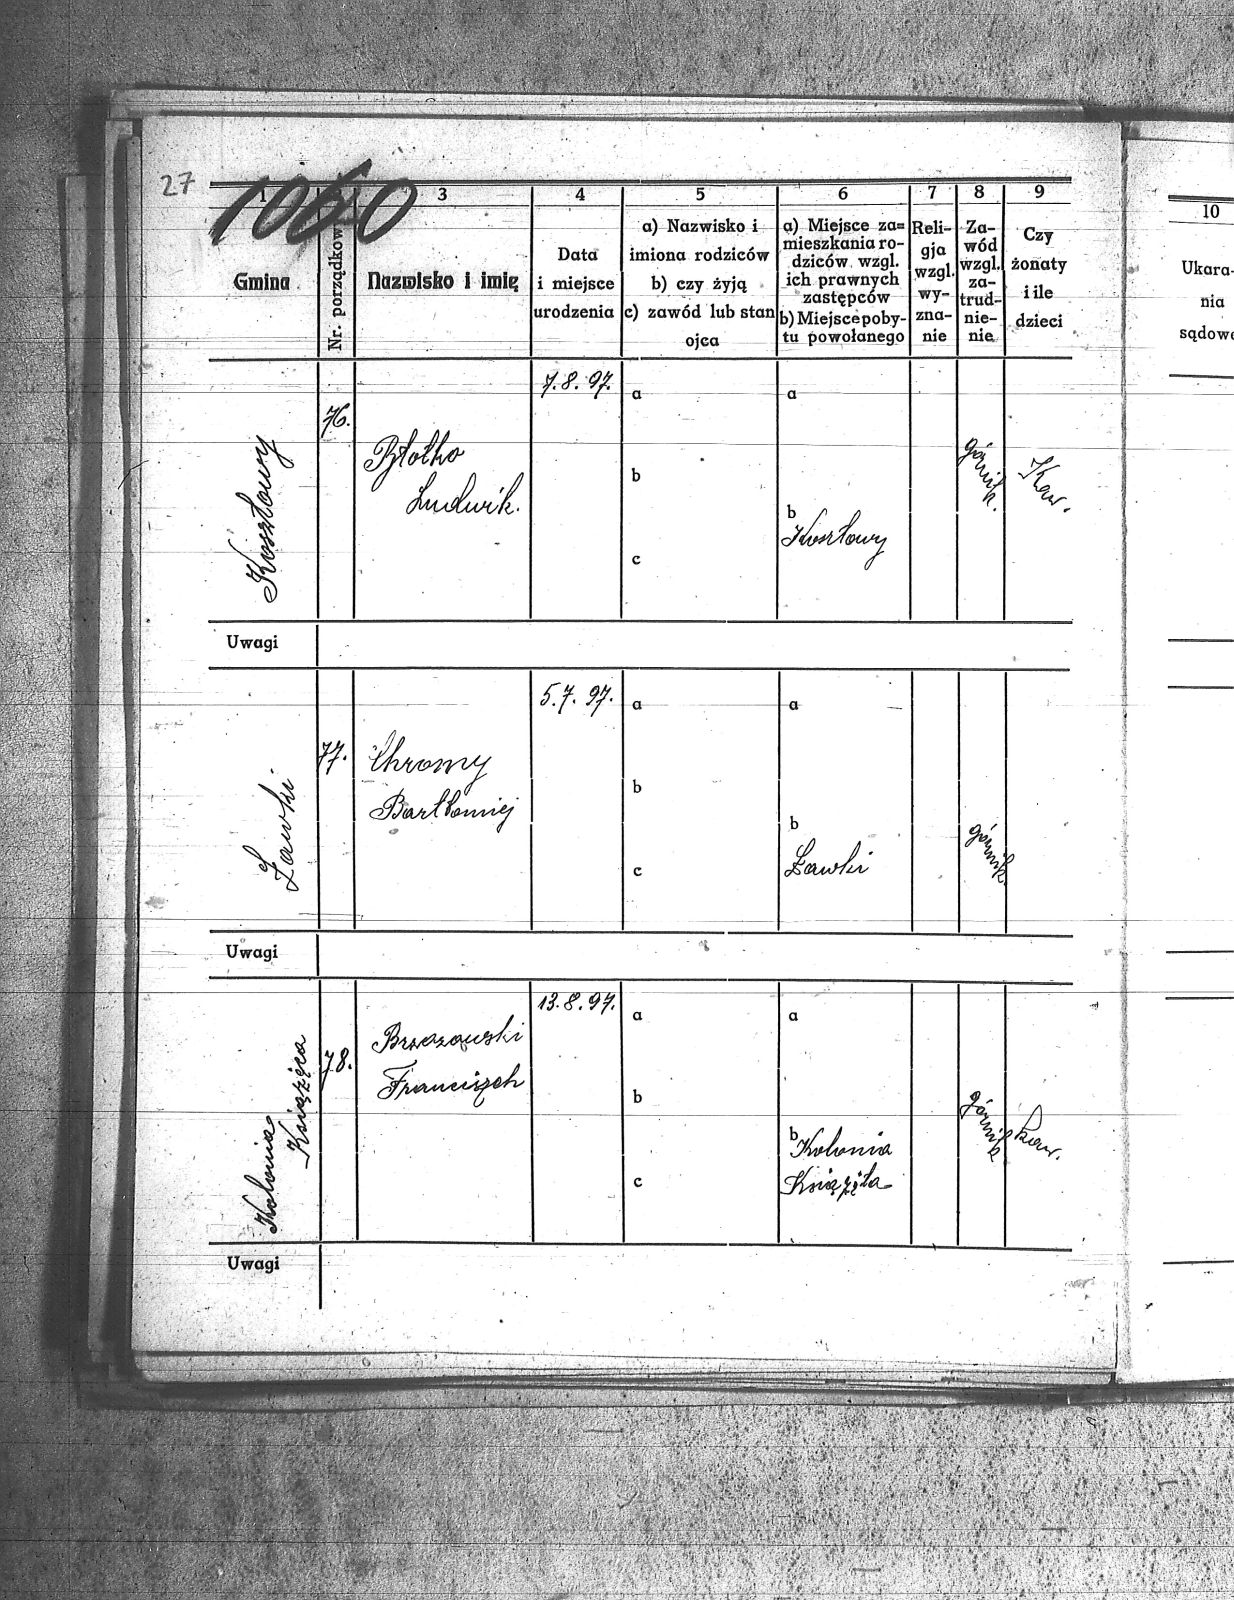 27
1060
1
3
4
5
6
7
8
9
10
Gmina
Nr. porządkow
Nazwisko i imię
Data
i miejsce
urodzenia
a) Nazwisko i
imiona rodziców
b) czy żyją
c) zawód lub stan
ojca
a) Miejsce za=
mieszkania ro-
dziców wzgl.
ich prawnych
zastępców
b) Miejsce poby-
tu powołanego
Reli-
gja
wzgl.
wy-
zna-
nie
Za-
wód
wzgl.
za-
trud-
nie-
nie
Czy
żonaty
i ile
dzieci
Ukara-
nia
sądowe
Kosztowy
76.
Ludwik.
7.8.97.
a
b
c
a
b
Kosztowy
górnik.
Kaw.
Uwagi
Ławki
77.
Chromy
Bartłomiej
5.7.97.
a
b
c
a
b
Ławki
górnik.
Uwagi
Kolonia
Książęca
78.
Brzozowski
Franciszek
13.8.97.
a
b
c
a
b
Kolonia
górnik
kaw.
Uwagi